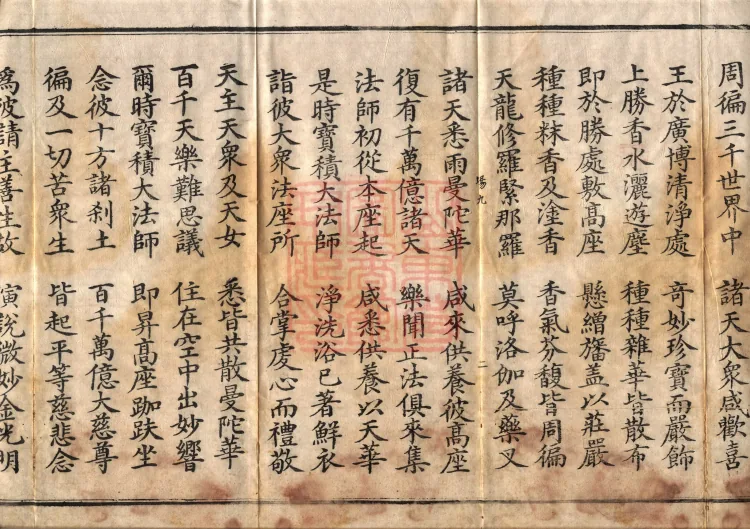 周徧三千世界中　諸天大衆咸歡喜
王於廣博清淨處　奇妙珍寶而嚴飾
上勝香水灑遊塵　種種雜華皆散布
即於勝處敷髙座　懸繒旛盖以莊嚴
種種粖香及塗香　香氣芬馥皆周徧
天龍修羅緊那羅　莫呼洛伽及藥叉
諸天悉雨曼陀華　咸來供養彼髙座
復有千萬億諸天　樂聞正法俱來集
法師初從本座起　咸悉供養以天華
是時寶積大法師　淨洗浴已著鮮衣
詣彼大衆法座所　合掌虔心而禮敬
天主天衆及天女　悉皆共散曼陀華
百千天樂難思議　住在空中出妙響
爾時寶積大法師　即昇髙座跏趺坐
念彼十方諸刹土　百千萬億大慈尊
徧及一切苦衆生　皆起平等慈悲念
爲彼請主善生故　演說微妙金光明